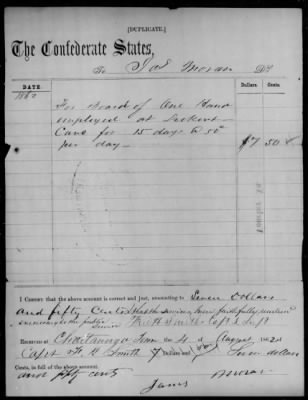 [DUPLICATE.]
The Confederate States,
To Jas Moran Dr
DATE. Dollars. Cents.
1862
For Board of One Hand
employed at
for 15 days @ 50
per day — $7 50
I CERTIFY that the above account is correct and just, amounting to Seven Dollars
and fifty Cents that the services were faithfully rendered
necessary for the public service
RECEIVED at Chattanooga Tenn the 4 of August, 1862, of
Capt H R Smith 7 Dollars and 50/100 Seven dollars
Cents, in full of the above account.
and fifty cents
James Moran